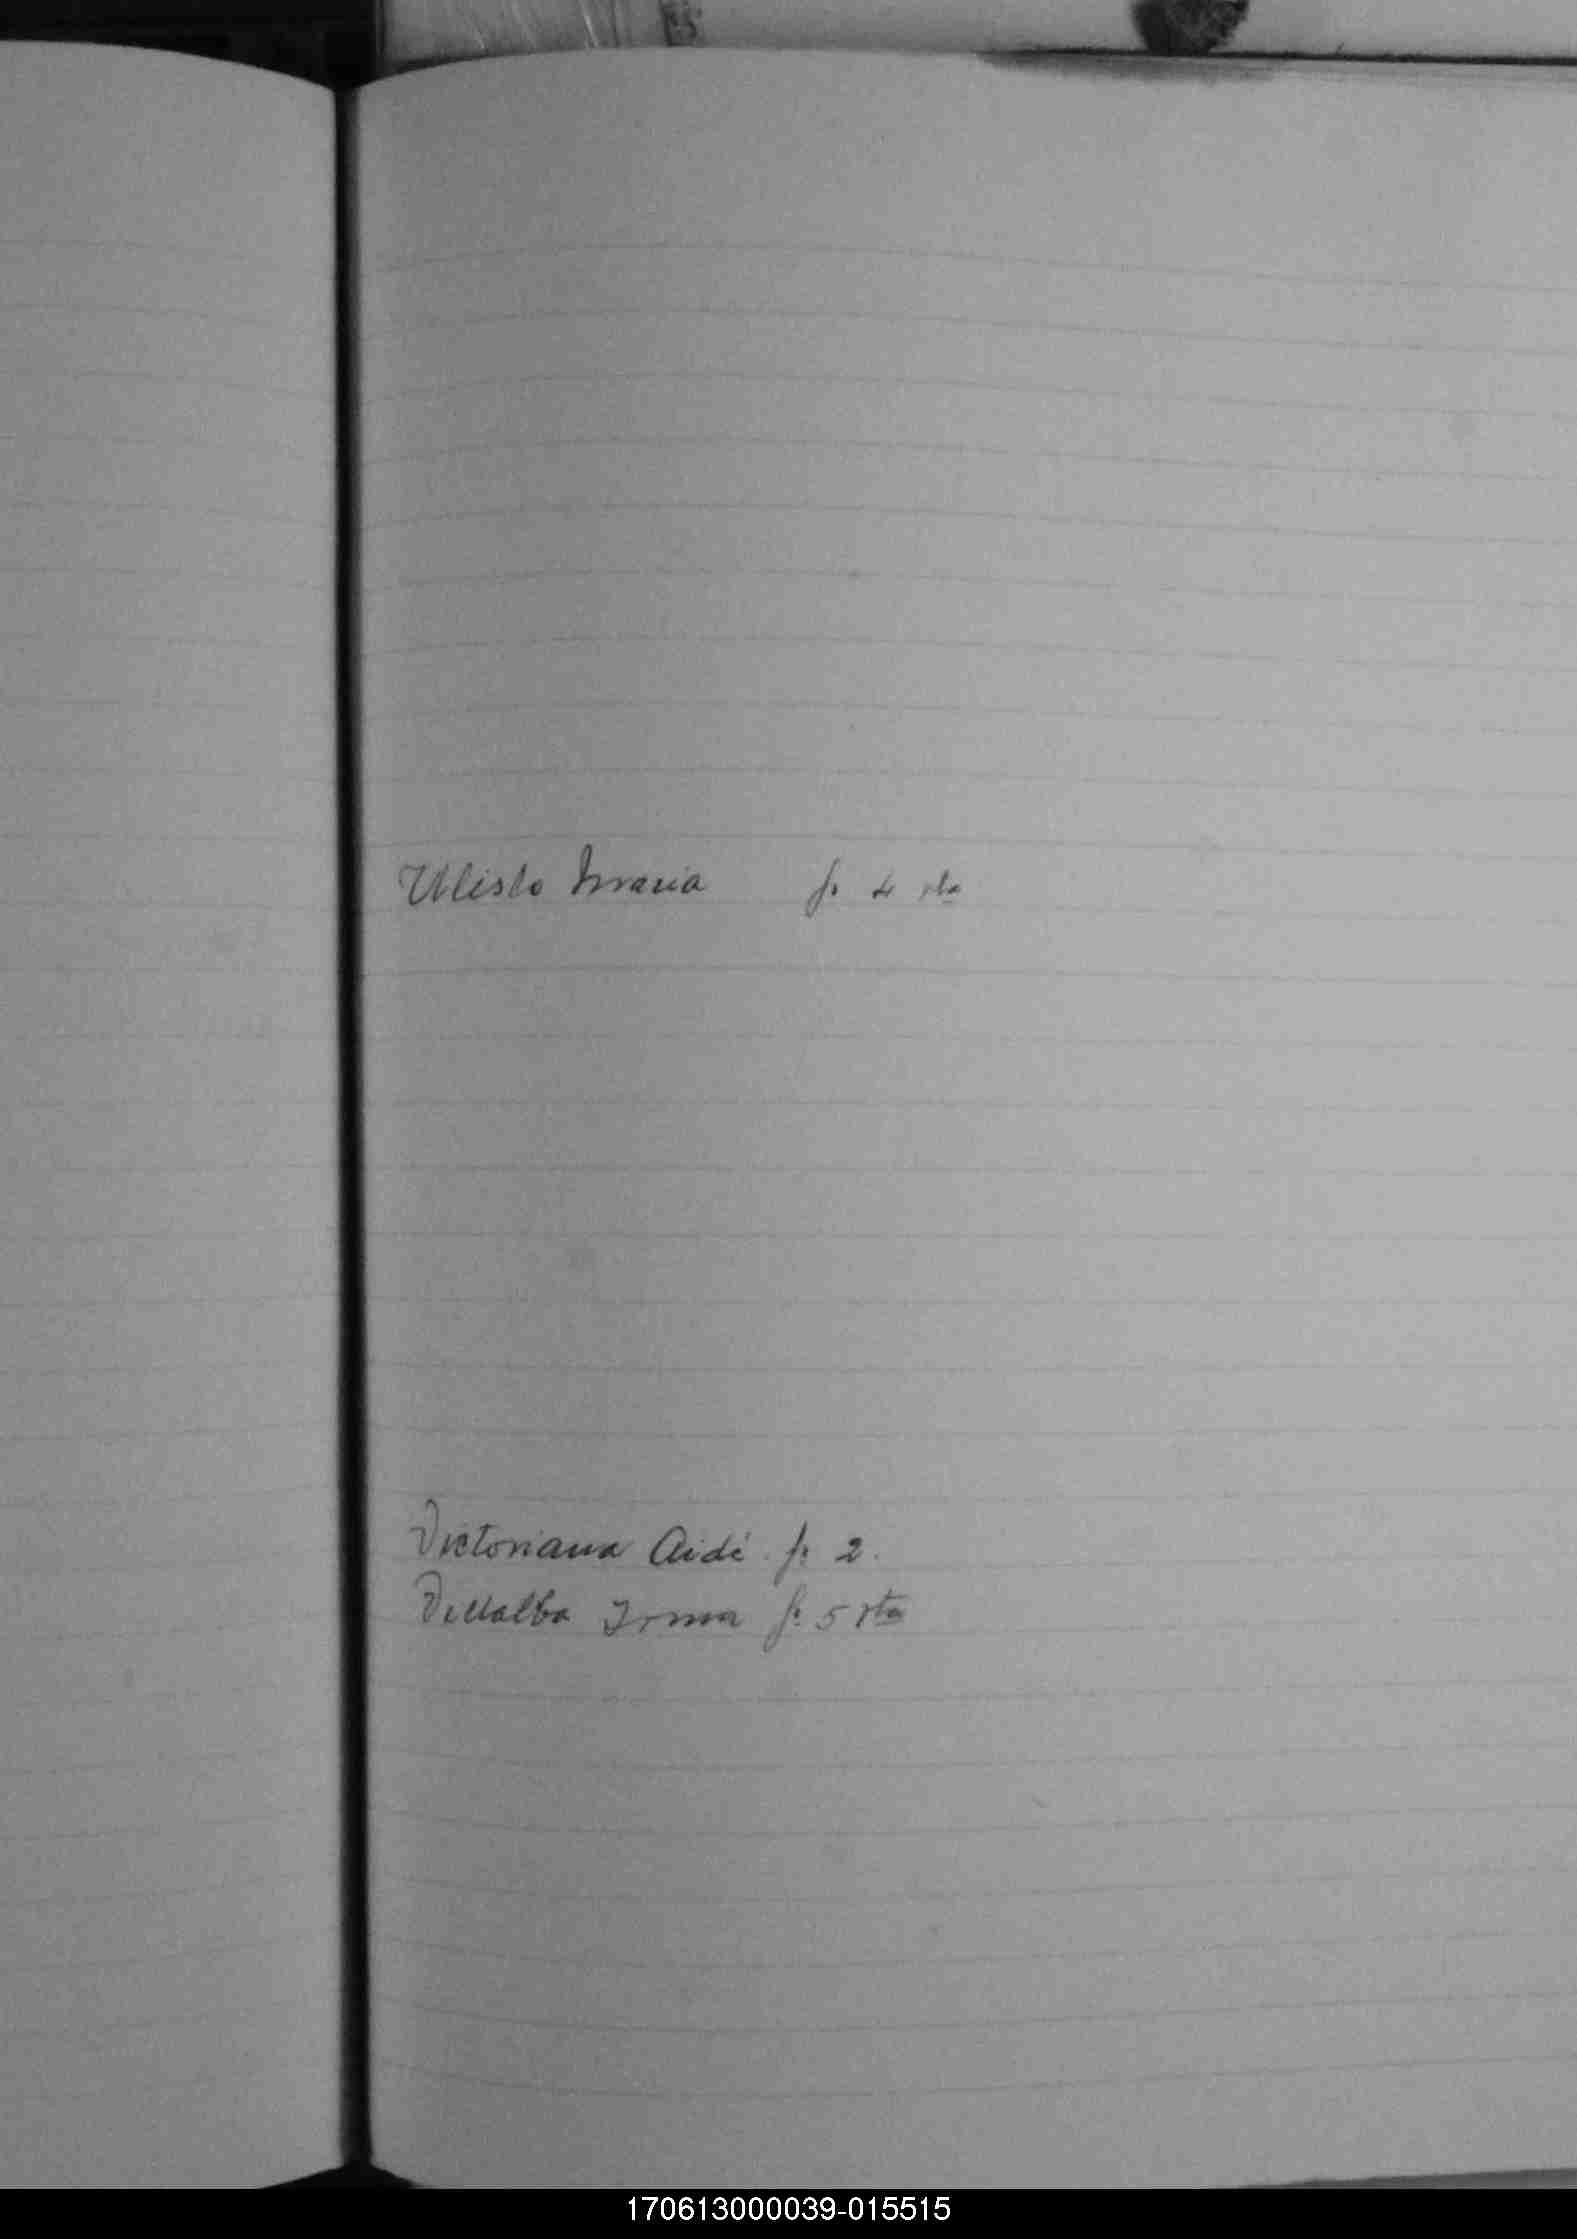 Ulislo Maria f. 4 vta
Victoriana Aidé. f: 2.
Villalba Irma f: 5 vta
170613000039-015515